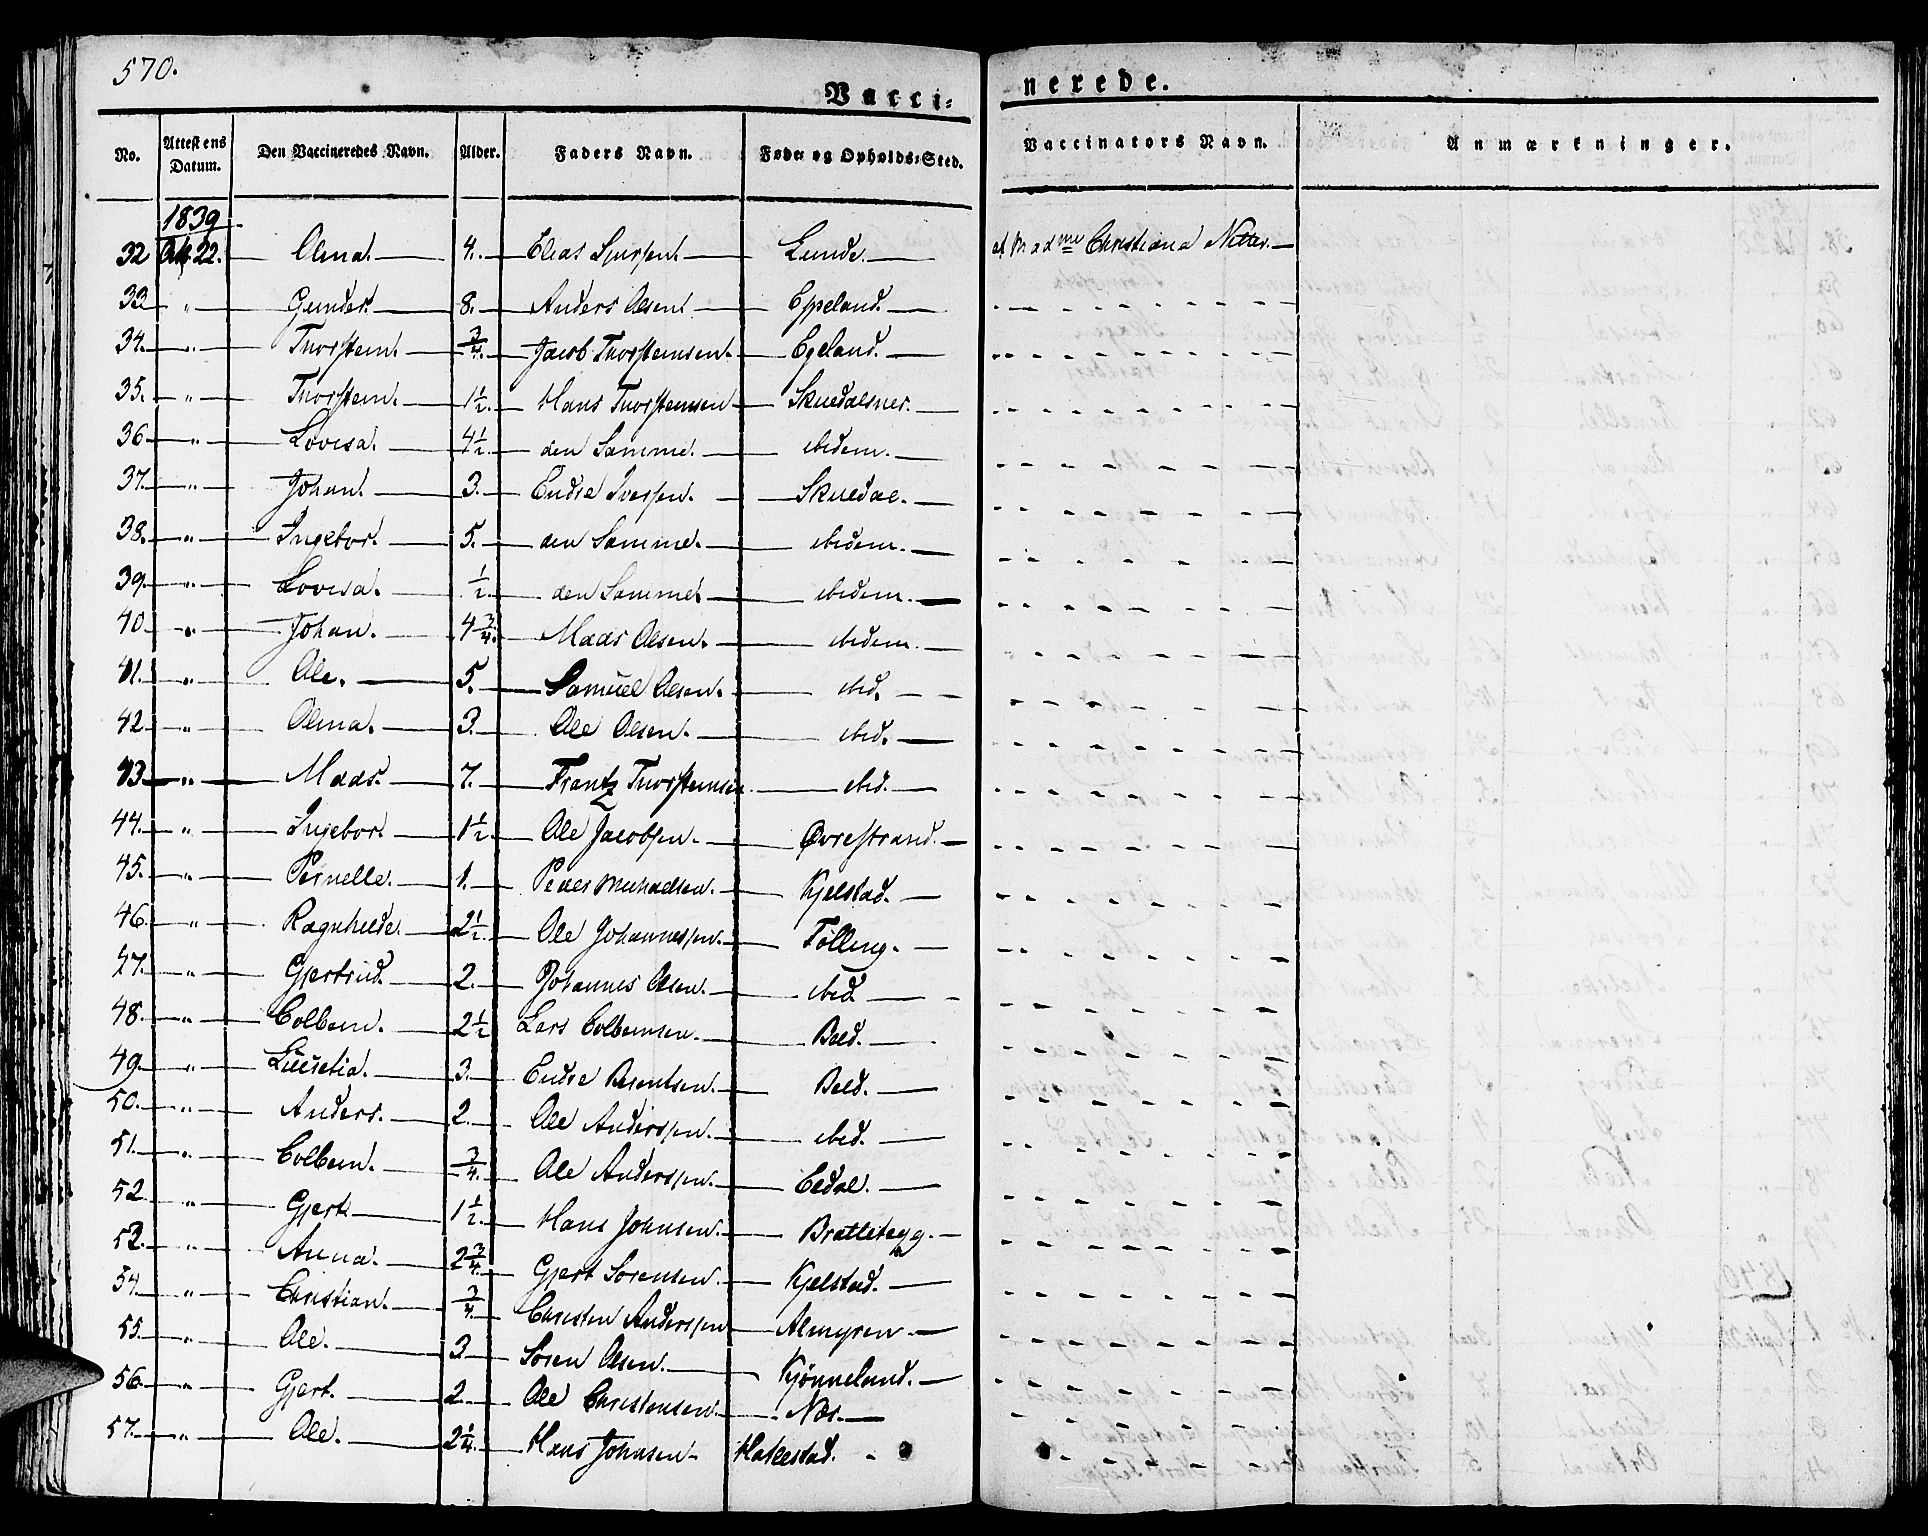 570.
Vacci-
nerede.
No. Attestens Datum. Den Vaccineredes Navn. Alder. Faders Navn. Føde og Opholds-Sted. Vaccinators Navn. Anmærkninger.
1839
32 22. Olina. 4. Elias Lunde. af Madme Christiana
33 " Gunder. 8. Anders Olsen Eppeland.
34. " Thorstein. 3/4. Jacob Thorsteinsen. Egeland.
35. " Thorstein. 1 1/2. Hans Thorsteinsen Skuedalsnes.
36 " Lovisa. 4 1/2. den Samme. ibidem.
37. " Johan. 3. Endre Iversen. Skuedal.
38. " Ingebor. 5. den Samme. ibidem.
39. " Lovisa. 1/2. den Samme. ibidem.
40. " Johan. 4 3/4. Mads Olsen. ibidem.
41. " Ole. 5. Samuel Olsen. ibid.
42 " Olina. 3. Ole Olsen. ibid.
43 " Mads. 7. Frantz Thorsteinsen ibid.
44. " Ingebor. 1 1/2. Ole Jacobsen. Øvrestrand.
45. " Pernelle. 1. Peder Michaelsen. Kjelstad.
46. " Ragnhilde. 2 1/2. Ole Johannessen. Tølling.
47. " Gjertrud. 2. Johannes Olsen. ibid
48. " Colbein. 2 1/2 Lars Colbeinsen. Bold.
49. " Lucretia. 3. Endre Berentsen. Bold.
50. " Anders. 2. Ole Anderssen. ibid.
51. " Colbein. 3/4. Ole Anderssen. Eldal.
52 " Gjert. 1 1/2. Hans Johnsen. Brattebegg.
53. " Anna. 2 3/4. Gjert Sørensen. Kjelstad.
54. " Christian. 3/4. Christen Anderssen Almyren
55. " Ole. 3 Søren Olsen. Kjønneland.
56. " Gjert. 2. Ole Christensen. Næs.
57. " Ole. 2 1/4. Hans Johnsen Hatlestad.